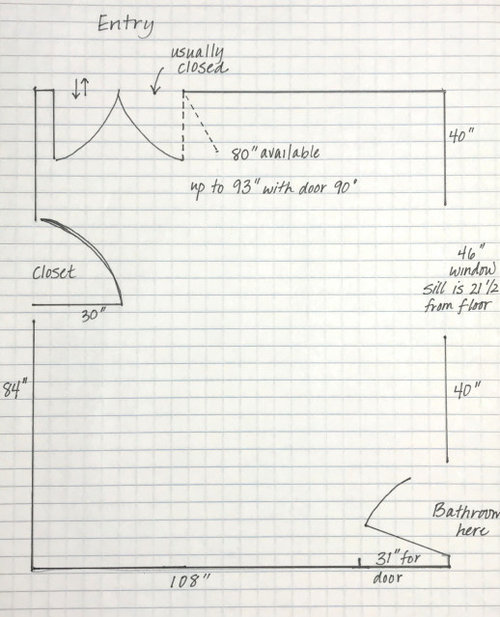 Entry
usually
closed
↓↑
80" available
40"
up to 93" with door 90°
46"
window
sill is 21 1/2
from floor
Closet
30"
84"
40"
Bathroom
here
31" for
door
108"